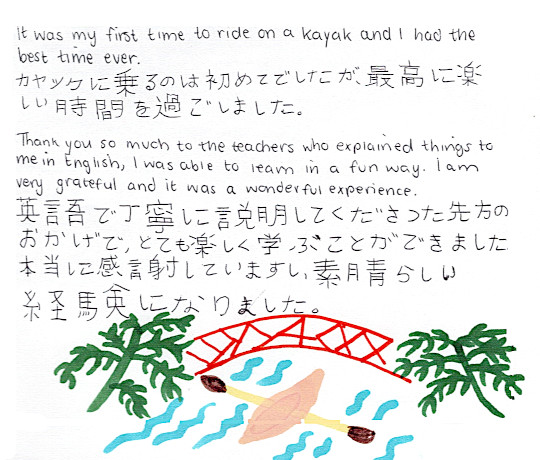 It was my first time to ride on a kayak and I had the
best time ever.
カヤックに乗るのは初めてでしたが、最高に楽
しい時間を過ごしました。
Thank you so much to the teachers who explained things to
me in English, I was able to learn in a fun way. I am
very grateful and it was a wonderful experience.
英語で丁寧に説明してくださった先方の
おかげで、とても楽しく学ぶことができました
本当に感謝していますし、素晴らしい
経験になりました。